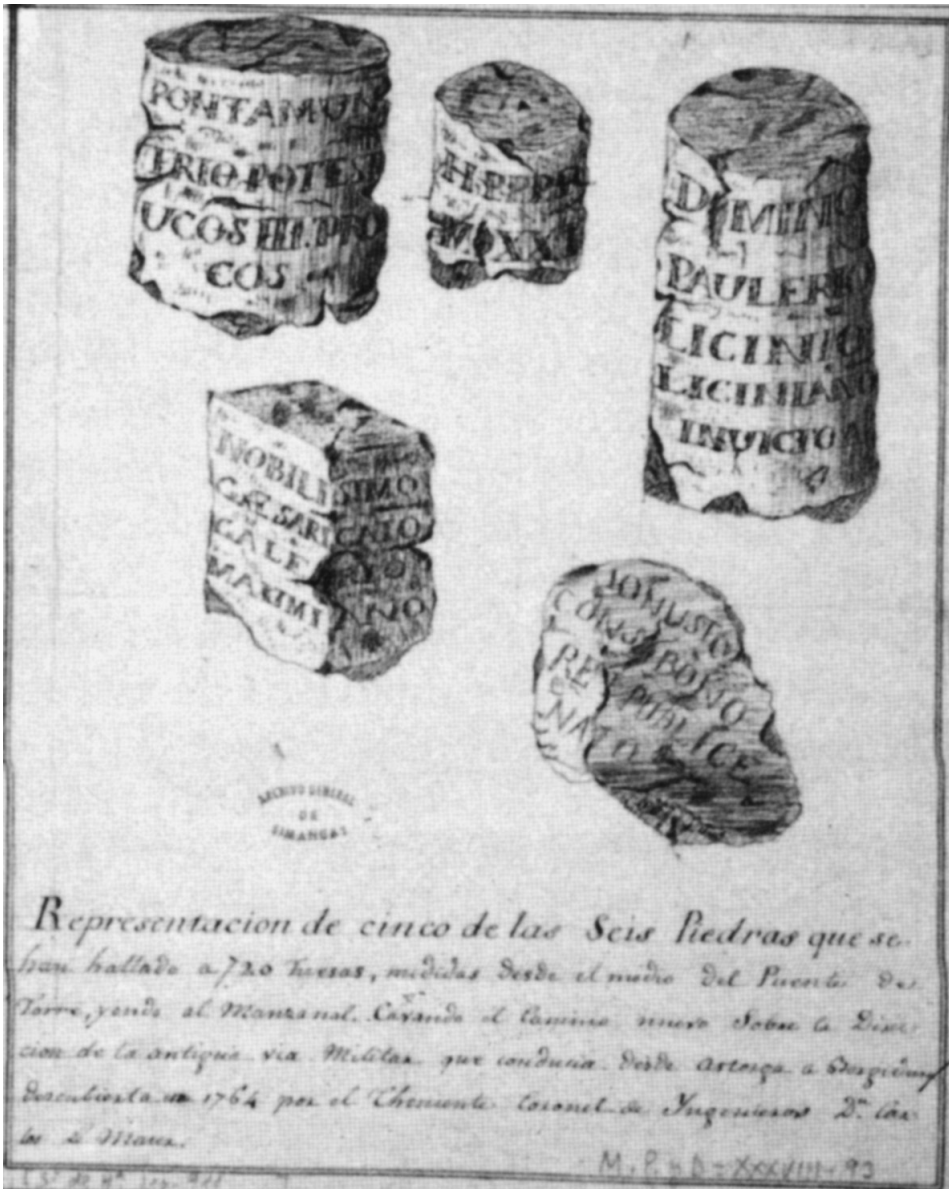 PONTAMUN
TRIO POTEST
UCOS IIII. PRO
COS
H PPPR
M XX
D MINO
PAULERIO
LICINIO
LICINIANO
INVICTO A
NOBILISSIMO
CAESARI CAIO
GALERIO
MAXIMIANO
IONUSTO
CONS BONO
REI PUBLICE
NATO
ARCHIVO GENERAL
DE
SIMANCAS
Representacion de cinco de las Seis Piedras que se
han hallado a 720 tuesas, medidas desde el medio del Puente de
Torre, yendo al Manzanal. Cavando el Camino nuevo Sobre la Direc-
cion de la antigua via Militar que conducia desde Astorga a
descubierta en 1764 por el Theniente Coronel de Yngenieros Dn. Car-
los Le Maur.
M. P. y D = XXXVIII - 93